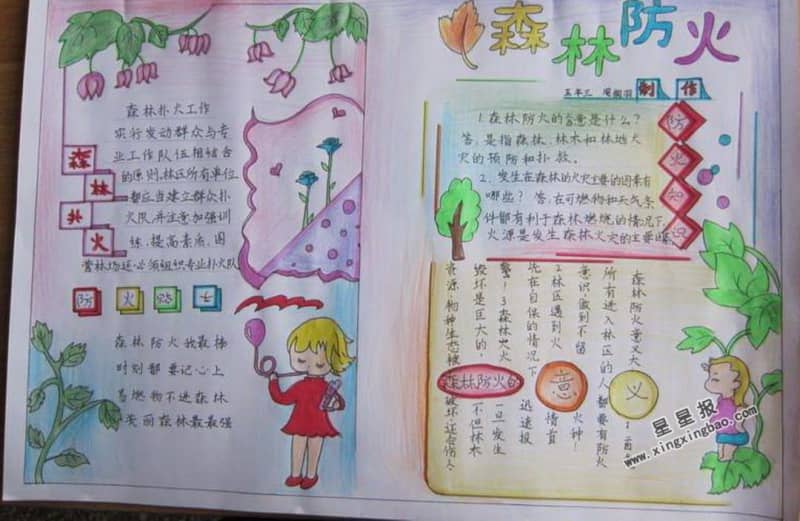 森林防火
五年三
制作
森林扑火
森林扑火工作
实行发动群众与专
业工作队伍相结合
的原则,林区所有单位
都应当建立群众扑
火队并注意加强训
练,提高素质,国
营林场还必须组织专业扑火队
防火
森林防火我最棒
时刻都要记心上
易燃物不进森林
美丽森林最最强
防火知识
1.森林防火的含意是什么?
答:是指森林、林木和林地火
灾的预防和扑救。
2、发生在森林的火灾主要的因素有
哪些? 答:在可燃物和天气条
件都有利于森林燃烧的情况下,
火源是发生森林火灾的主要
森林防火的意义
森林防火意义大
所有进入林区的人都要有防火
意识做到不留火种!
2林区遇到火情首
先在自保的情况下迅速报
警!3森林火灾一旦发生
毁坏是巨大的,不但林木
资源,物种生态被破坏还会伤人.
星星报
www.xingxingbao.com